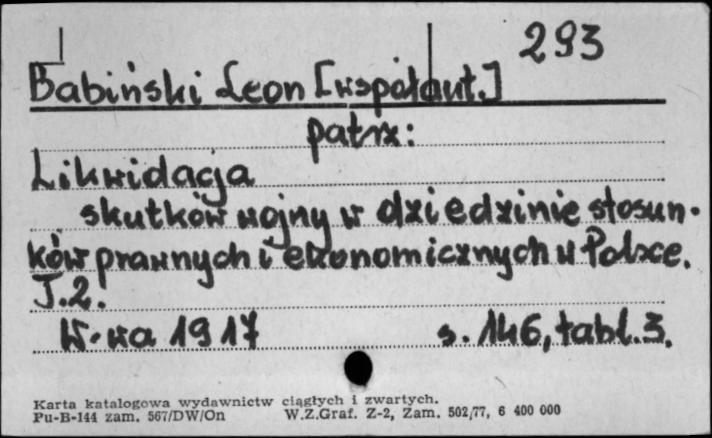 293
Babiński Leon [współaut.]
patrz:
Likwidacja
skutków wojny w dziedzinie stosun-
ków prawnych i ekonomicznych w Polsce.
T.2.
W-wa 1917 s. 146, tabl. 3.
Karta katalogowa wydawnictw ciągłych i zwartych.
Pu-B-144 zam. 567/DW/On W.Z.Graf. Z-2, Zam. 502/77, 6 400 000